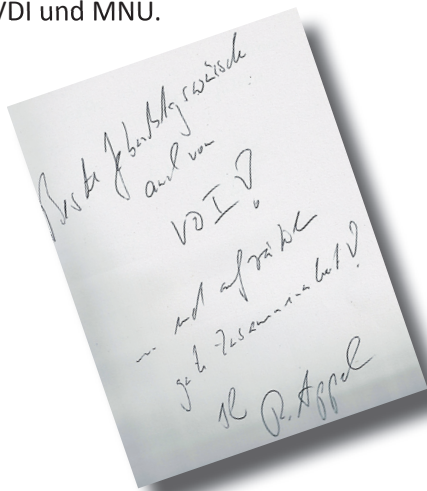 VDI und MNU.
Beste Geburtstagswünsche
auch von
VDI!
... und auf
gute Zusammenarbeit!
R. Appel